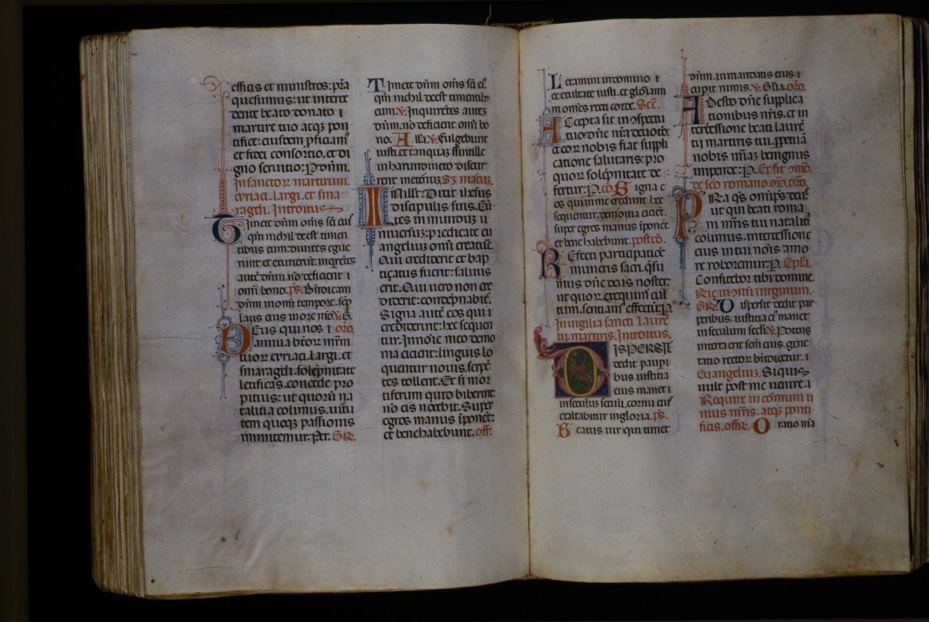 effias et ministros: pra
quesumus: ut interce
dente beato donato i
martire tuo atqz pon
tifice: eiusdem pficiam
et fidei consortio. et di
gno seruitio: P dnm.
In sanctor martirum.
cyriaci. largi. et sma
ragdi. Introitus
Timete dnm oms sci eius
qm nichil deest timen
tibus eum diuites egue
runt et esurierunt. inqretes
aute dnm. no deficient i
omi bono. ps. Bndicam
dnm in omi tempore. sep
laus eius in ore mo. oro.
Deus qui nos i
annua btor mrm
tuor cyriaci. largi. et
smaragdi. solepnitate
letificas. concede pro
pitius: ut quoru na
talicia colimus. uirtu
tem quoqz passionis
imitemur: Per. GR.
Timete dnm oms sci ei.
qm nichil deest timentib
eum. V. Inquirentes autez
dnm. no deficient omi bo
no. Alla. V. Fulgebunt
iusti. et tanquaz scintille
in harundineto discur
rent in eternu. Sz marcu.
In illo t. Dixit ihesus
discipulis suis. Eu
tes in mundum u
niuersu: predicate eu
angelium omi creature.
Qui crediderit et bap
ticatus fuerit: saluus
erit. Qui uero non cre
diderit: condepnabit.
Signa aute eos qui
crediderint: hec sequen
tur. In noie meo demo
nia eicient: linguis lo
quentur nouis. serpe
tes tollent. Et si mor
tiferum quid biberint
no eis nocebit. Super
egros manus iponet:
et bene habebunt. off.
Letamini in domino i
et exultate iusti. et gloriam
in omes recti corde. Sec.
Accepta sit in cspectu
tuo dne nra deuotio:
et eor nobis fiat suppli
catione salutaris: pro
quor solepnitate de
fertur: P. co. Signa e
os qui in me credunt hec
sequentur. demonia eicient.
super egros manus iponet
et bene habebunt. postco.
Refecti participatioe
muneris sacri. qsu
mus dne deus noster:
ut quor exequim cul
tum. sentiam effectu: P.
In uigilia sancti laure
tii. martiris. Introitus.
DISPERSIT
dedit paupi
bus iustitia
eius manet i
in seculum seculi. cornu eius
exaltabitur in gloria. ps.
Beatus uir qui timet
dnm. in mandatis eius i
cupit nimis. V. Glia. oro.
Adesto dne supplica
tionibus nris. et in
tercessione beati laure
tii martiris tui. ppetuam
nobis miam benignus
impende: P. Et fit como.
de sco romano. mr. oro.
Presta qs omps deus:
ut qui beati roma
ni mris tui natalicia
colimus. intercessione
eius in tui nois amo
re roboremur: P. Epla.
Confitebor tibi domine.
Rure in comi uirginum.
GR. Dispersit dedit pau
peribus. iustitia ei manet
in seculum seculi. V. Potens
in terra erit semen eius. gene
ratio rector bndicetur. i
Euangelius. Si quis
uult post me uenire. i
Require in comuni u
nius mris. atqz ponti
ficis. offre. Oratio mea